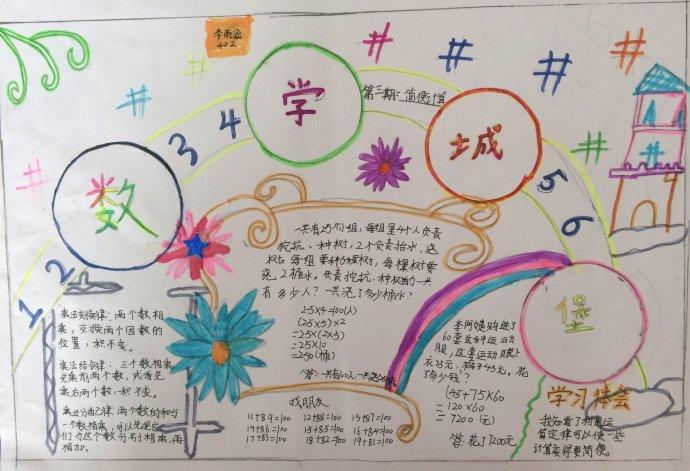 李雨涵
402
数学城堡
第三期：简便计算
1 2 3 4 5 6
一共有25个小组，每组里4个人负责
挖坑、种树，2个负责抬水、浇
树。每组要种5棵树，每棵树要
浇2桶水。负责挖坑、种树的一共
有多少人？一共浇了多少桶水？
25×4=100(人)
(25×5)×2
=25×(2×5)
=25×10
=250(桶)
乘法交换律：两个数相
乘，交换两个因数的
位置，积不变。
乘法结合律：三个数相乘
先乘前两个数，或者先
乘后两个数，积不变。
乘法分配律：两个数的和与
一个数相乘，可以先把它
们与这个数分别相乘，再
相加。
找朋友
11+89=100 12+88=100 13+87=100
14+86=100 15+85=100 16+84=100
17+83=100 18+82=100 19+81=100
李阿姨购进了
60套这种运动
服，这套运动服上
衣75元，裤子45元。花
了多少钱？
(45+75)×60
=120×60
=7200(元)
答：花了7200元
学习体会
我知道了利用运
算定律可以使一些
计算变得更简便。